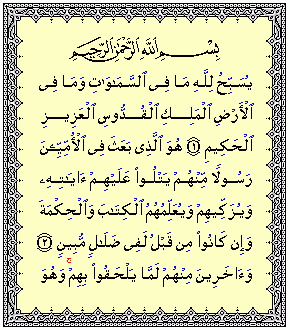 بِسْمِ ٱللَّهِ ٱلرَّحْمَٰنِ ٱلرَّحِيمِ
يُسَبِّحُ لِلَّهِ مَا فِى ٱلسَّمَٰوَٰتِ وَمَا فِى
ٱلْأَرْضِ ٱلْمَلِكِ ٱلْقُدُّوسِ ٱلْعَزِيزِ
ٱلْحَكِيمِ ١ هُوَ ٱلَّذِى بَعَثَ فِى ٱلْأُمِّيِّـۧنَ
رَسُولًا مِّنْهُمْ يَتْلُوا۟ عَلَيْهِمْ ءَايَٰتِهِۦ
وَيُزَكِّيهِمْ وَيُعَلِّمُهُمُ ٱلْكِتَٰبَ وَٱلْحِكْمَةَ
وَإِن كَانُوا۟ مِن قَبْلُ لَفِى ضَلَٰلٍ مُّبِينٍ ٢
وَءَاخَرِينَ مِنْهُمْ لَمَّا يَلْحَقُوا۟ بِهِمْ وَهُوَ